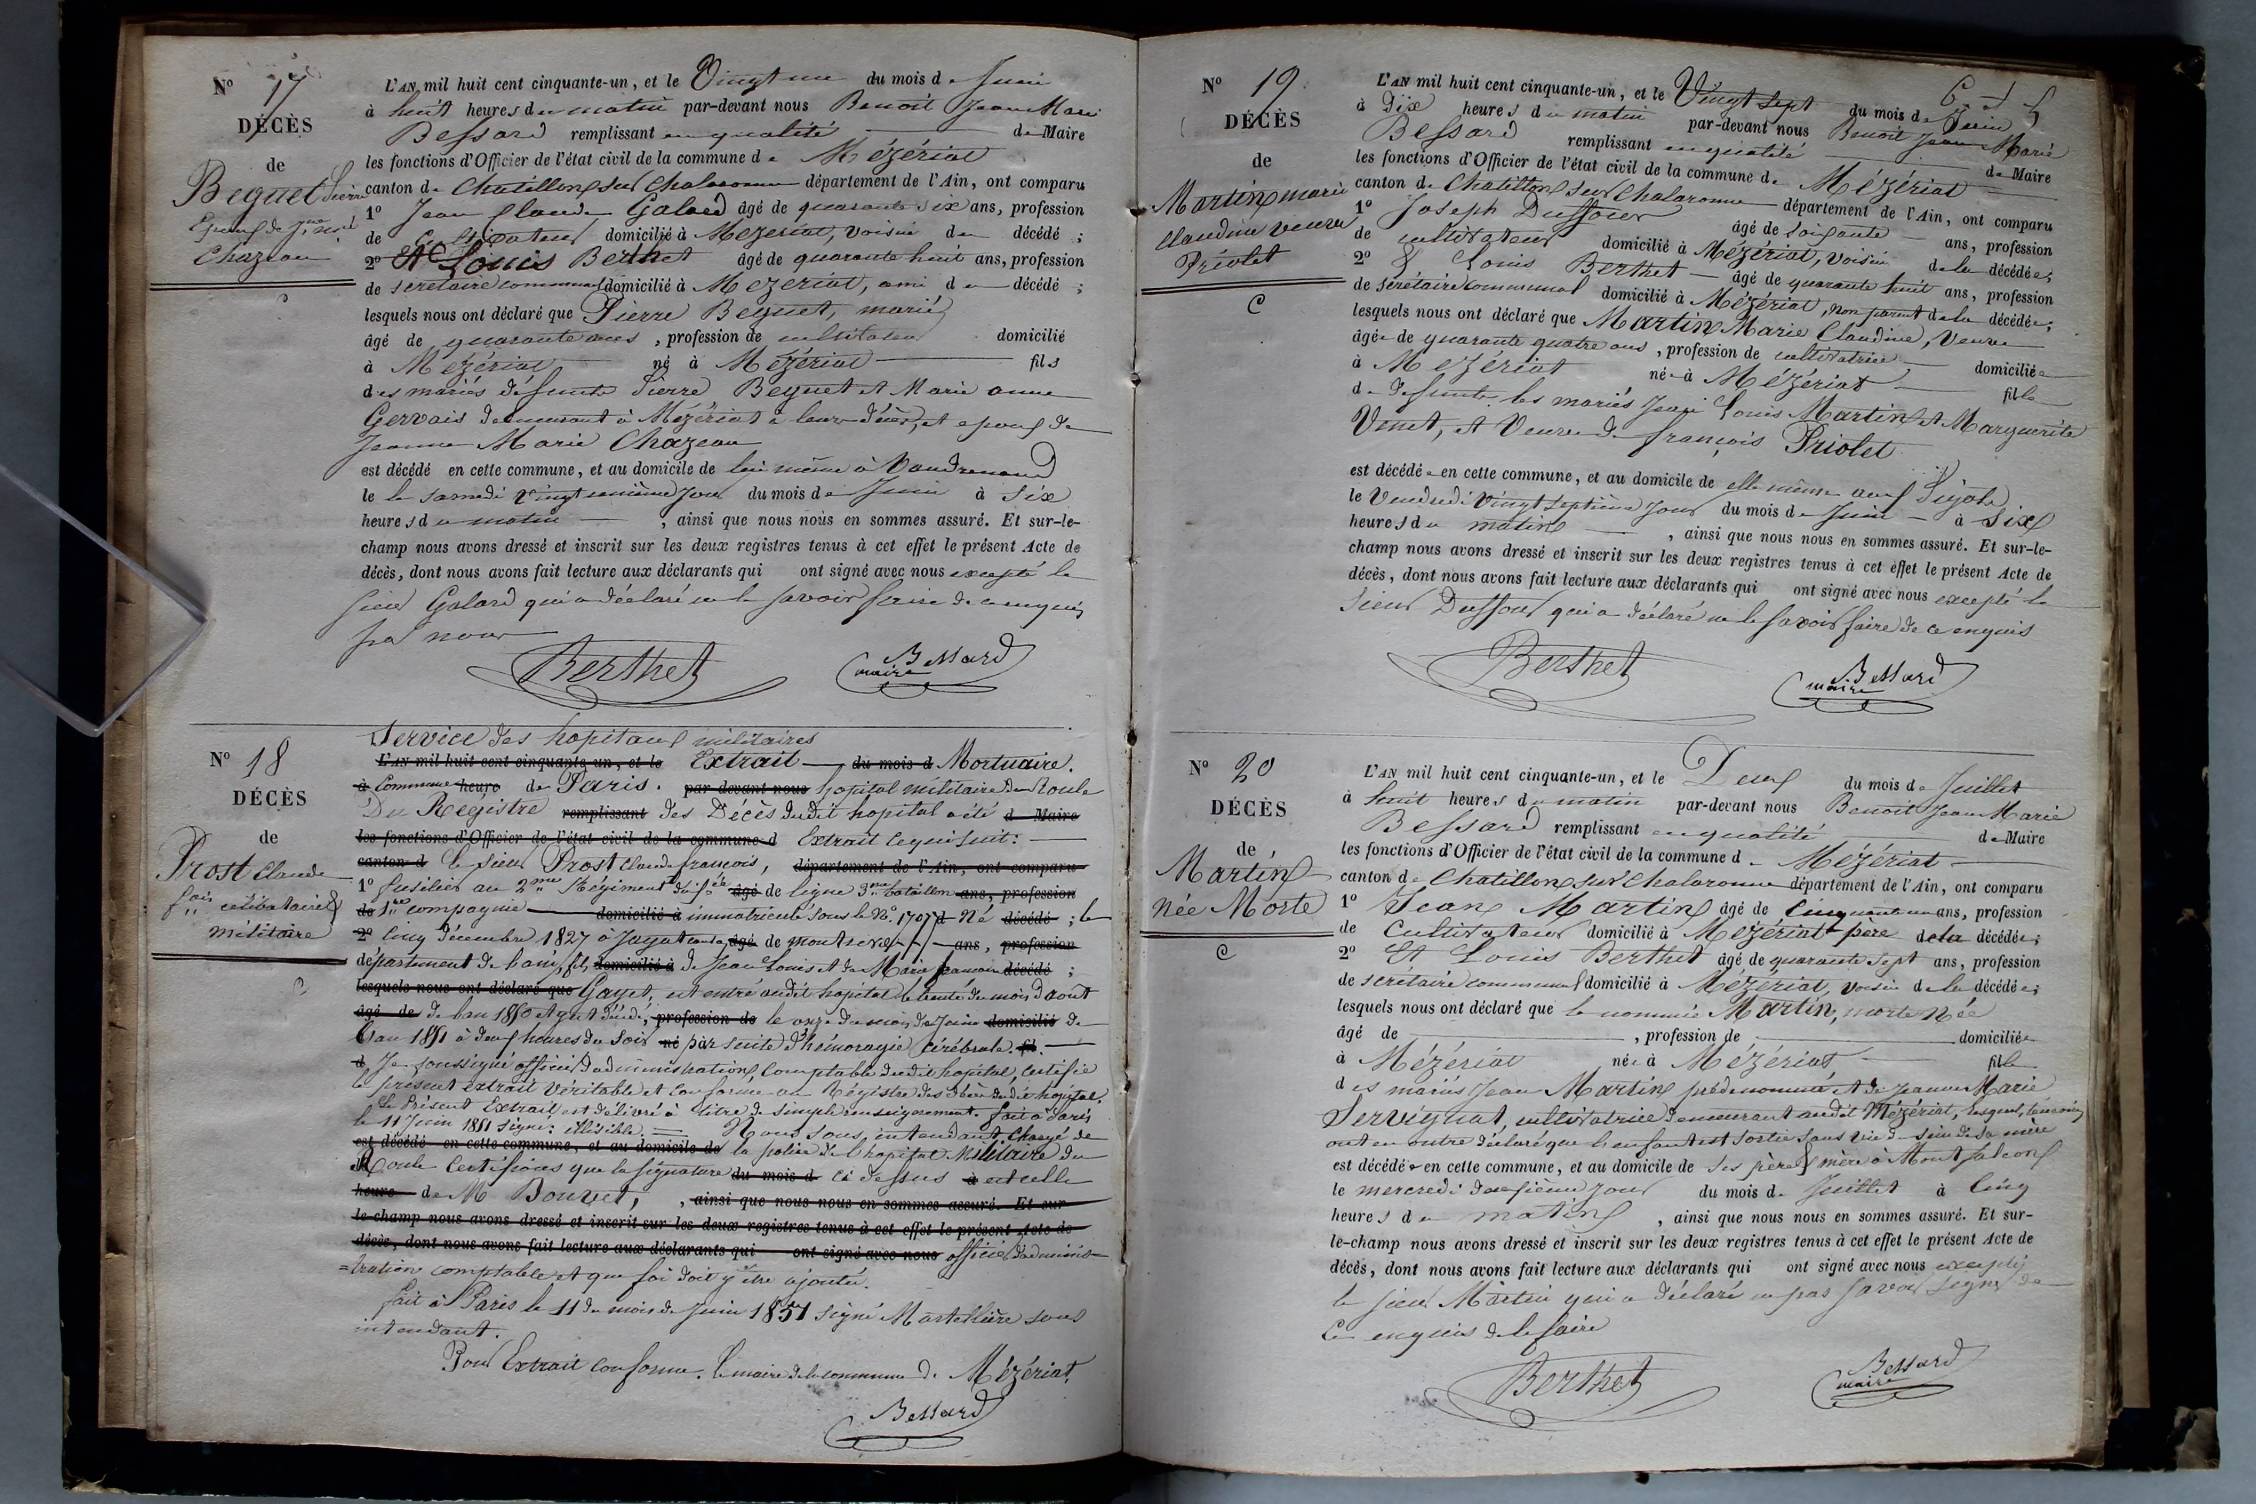 N° 17
DÉCÈS
de
Beguet Pierre
Epoux de
Chazeau
L'AN mil huit cent cinquante-un, et le Vingt un du mois de Juin
à huit heures du matin par-devant nous Benoit Jean Marie
Bessard remplissant en qualité de Maire
les fonctions d'Officier de l'état civil de la commune de Mézériat
canton de Chatillon sur Chalaronne département de l'Ain, ont comparu
1° Jean Claude Galard âgé de quarante six ans, profession
de Cultivateur domicilié à Mézériat, voisin du décédé ;
2° Et Louis Berthet âgé de quarante huit ans, profession
de secretaire communal domicilié à Mézériat, ami du décédé ;
lesquels nous ont déclaré que Pierre Beguet, marié,
âgé de quarante ans , profession de cultivateur domicilié
à Mézériat né à Mézériat fils
des mariés défunts Pierre Beguet et Marie anne
Gervais demeurant à Mézériat à leur décès, et epoux de
Jeanne Marie Chazeau
est décédé en cette commune, et au domicile de lui même à Vaudrenand
le le samedi vingt unième jour du mois de Juin à six
heures du matin , ainsi que nous nous en sommes assuré. Et sur-le-
champ nous avons dressé et inscrit sur les deux registres tenus à cet effet le présent Acte de
décès, dont nous avons fait lecture aux déclarants qui ont signé avec nous excepté le
sieur Galard qui a déclaré ne le savoir faire de ce enquis
par nous
Berthet
Bessard
maire
N° 18
DÉCÈS
de
Prost Claude
fois célibataire
militaire
Service des hopitaux militaires
L'AN mil huit cent cinquante-un, et le Extrait du mois d Mortuaire.
à Commune heure de Paris. par-devant nous hopital militaire du Roule
Du Registre remplissant des Décès dudit hopital a été d Maire
les fonctions d'Officier de l'état civil de la commune d Extrait ce qui suit:
canton d le sieur Prost Claude françois, département de l'Ain, ont comparu
1° fusilier au 2me Régiment âgé de ligne 3me bataillon ans, profession
de 1re compagnie domicilié à immatriculé sous le N° 1707 d Né décédé ; le
2° cinq Décembre 1827 à Jayat canton âgé de montrevel ans, profession
département de l'ain, fils domicilié à de Jean Louis et de Marie françoise décédé ;
lesquels nous ont déclaré que Gayet, est entré audit hopital le trente du mois d'août
âgé de de l'an 1850 et y est décédé, profession de le onze du mois de Juin domicilié de
l'an 1851 à deux heures du soir né par suite d'hémoragie cérébrale. fil.
d Je soussigné officier d'administration Comptable dudit hopital, certifie
le présent extrait véritable et conforme au Régistre des Décès dudit hopital.
Le Présent Extrait est délivré à titre de simple renseignement. fait à Paris
le 11 Juin 1851 signé: illisible. Nous sous intendant Chargé de
est décédé en cette commune, et au domicile de la police de l'hopital Militaire du
Roule Certifions que la signature du mois d ci dessus à est celle
heure de M Bouvet, , ainsi que nous nous en sommes assuré. Et sur-
le-champ nous avons dressé et inscrit sur les deux registres tenus à cet effet le présent Acte de
décès, dont nous avons fait lecture aux déclarants qui ont signé avec nous officier d'adminis=
=tration comptable et que foi doit y être ajoutée.
fait à Paris le 11 du mois de Juin 1851 signé Martellière sous
intendant.
Pour Extrait conforme. le maire de la commune de Mézériat,
Bessard
N° 19
DÉCÈS
de
Martin marie
claudine veuve
Priolet
C
L'AN mil huit cent cinquante-un, et le Vingt sept du mois de Juin
à Dix heures du matin par-devant nous Benoit Jean Marie
Bessard remplissant en qualité de Maire
les fonctions d'Officier de l'état civil de la commune de Mézériat
canton de Chatillon sur Chalaronne département de l'Ain, ont comparu
1° Joseph Duffour âgé de soixante ans, profession
de cultivateur domicilié à Mézériat, voisin de la décédée;
2° & Louis Berthet âgé de quarante huit ans, profession
de secrétaire communal domicilié à Mézériat, non parent de la décédée;
lesquels nous ont déclaré que Martin Marie Claudine, Veuve
âgée de quarante quatre ans , profession de cultivatrice domiciliée
à Mézériat née à Mézériat fille
de Defunts les mariés Jean Louis Martin et Marguerite
Venet, et Veuve de françois Priolet
est décédée en cette commune, et au domicile de elle même aux
le Vendredi Vingt septième jour du mois de Juin à six
heures du matin , ainsi que nous nous en sommes assuré. Et sur-le-
champ nous avons dressé et inscrit sur les deux registres tenus à cet effet le présent Acte de
décès, dont nous avons fait lecture aux déclarants qui ont signé avec nous excepté le
sieur Duffour qui a déclaré ne le savoir faire de ce enquis
Berthet
Bessard
maire
N° 20
DÉCÈS
de
Martin
Née Morte
C
L'AN mil huit cent cinquante-un, et le Deux du mois de Juillet
à huit heures du matin par-devant nous Benoit Jean Marie
Bessard remplissant en qualité de Maire
les fonctions d'Officier de l'état civil de la commune d Mézériat
canton de Chatillon sur Chalaronne département de l'Ain, ont comparu
1° Jean Martin âgé de Cinquante un ans, profession
de Cultivateur domicilié à Mézériat père de la décédée;
2° Et Louis Berthet âgé de quarante sept ans, profession
de secrétaire communal domicilié à Mézériat, voisin de la décédée;
lesquels nous ont déclaré que la nommée Martin, morte Née
âgé de , profession de domiciliée
à Mézériat née à Mézériat fille
des mariés Jean Martin prédenommé et de Jeanne Marie
Servignat, cultivatrice demeurant audit Mézériat, lesquels témoins
ont en outre déclaré que l'enfant est sortie sans vie du sein de sa mère
est décédée en cette commune, et au domicile de ses père & mère à Montfalcon
le mercredi deuxième jour du mois de Juillet à Cinq
heures du matin , ainsi que nous nous en sommes assuré. Et sur-
le-champ nous avons dressé et inscrit sur les deux registres tenus à cet effet le présent Acte de
décès, dont nous avons fait lecture aux déclarants qui ont signé avec nous excepté
le sieur Martin qui a déclaré ne pas savoir signer de
ce enquis de le faire
Berthet
Bessard
maire